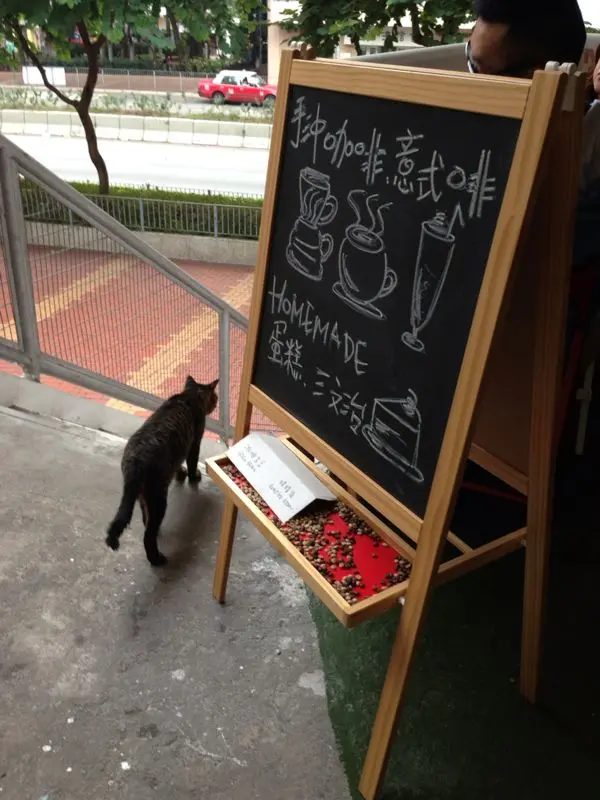 手沖咖啡.意式咖啡
HOMEMADE
蛋糕..三文治